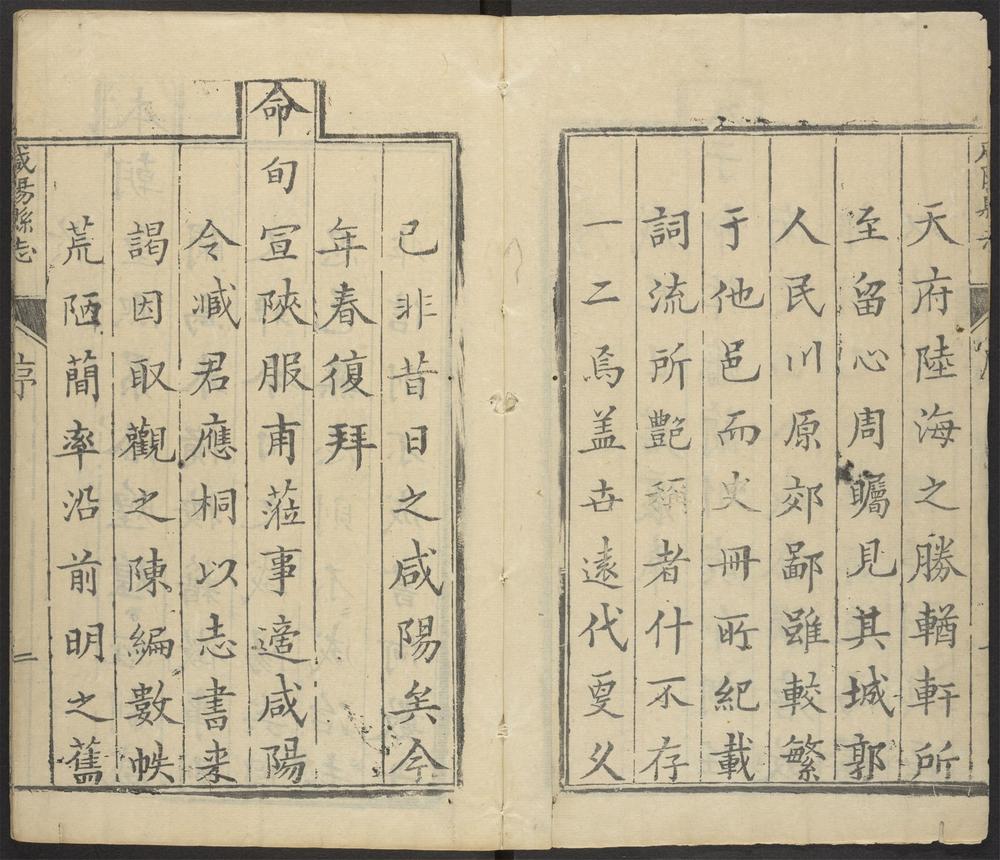 天府陸海之勝輶軒所
至留心周矚見其城郭
人民川原郊鄙雖較繁
于他邑而史冊所紀載
詞流所艷稱者什不存
一二焉盖世遠代更久
已非昔日之咸陽矣今
年春復拜
命旬宣陝服甫蒞事適咸陽
令臧君應桐以志書来
謁因取觀之陳編數帙
荒陋簡率沿前明之舊
咸陽縣志
序
二